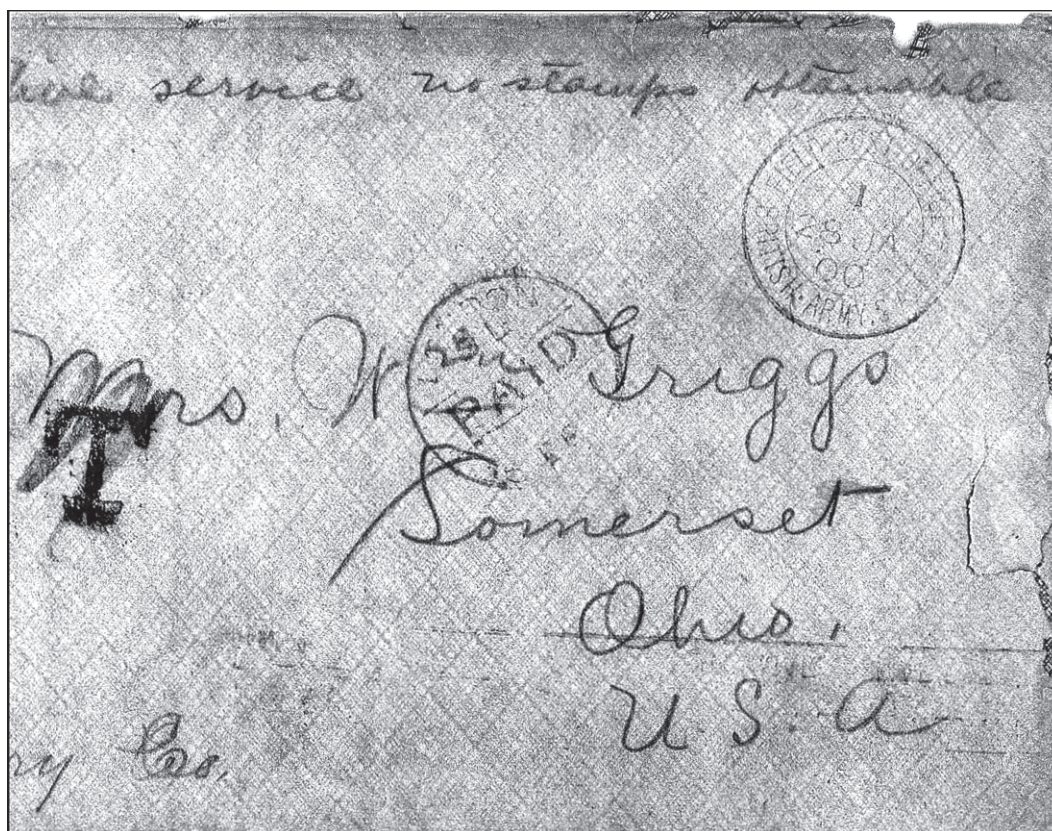 service no stamps obtainable
FIELD POST OFFICE
1
28 JA
00
BRITISH ARMY S.
Mrs. W Griggs
PAID
T
Somerset
Ohio.
U. S. A
ry Co.